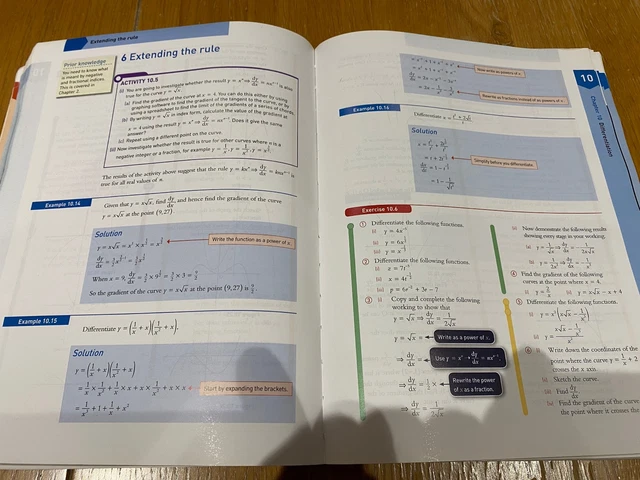 Extending the rule
Prior knowledge
You need to know what
is meant by negative
and fractional indices.
This is covered in
Chapter 2.
6 Extending the rule
ACTIVITY 10.5
(i) You are going to investigate whether the result y = xⁿ ⇒ dy/dx = nxⁿ⁻¹ is also
true for the curve y = √x.
(a) Find the gradient of the curve at x = 4. You can do this either by using
graphing software to find the gradient of the tangent to the curve, or by
using a spreadsheet to find the limit of the gradients of a series of chords.
(b) By writing y = √x in index form, calculate the value of the gradient at
x = 4 using the result y = xⁿ ⇒ dy/dx = nxⁿ⁻¹. Does it give the same
answer?
(c) Repeat using a different point on the curve.
(ii) Now investigate whether the result is true for other curves where n is a
negative integer or a fraction, for example
The results of the activity above suggest that the rule y = kxⁿ ⇒ dy/dx = knxⁿ⁻¹ is
true for all real values of n.
Example 10.14
Given that y = x√x, find dy/dx and hence find the gradient of the curve
y = x√x at the point (9,27).
Solution
y = x√x = x¹ × x^(1/2) = x^(3/2)
Write the function as a power of x.
dy/dx = 3/2 x^(1/2)
When x = 9, dy/dx = 3/2 × 9^(1/2) = 3/2 × 3 = 9/2
So the gradient of the curve y = x√x at the point (9,27) is 9/2.
Example 10.15
Differentiate y = (1/x + x)(1/x² + x).
Solution
y = (1/x + x)(1/x² + x)
= 1/x × 1/x² + 1/x × x + x × 1/x² + x × x
Start by expanding the brackets.
= 1/x³ + 1 + 1/x + x²
Now write as powers of x.
Rewrite as fractions instead of as powers of x.
10
Chapter 10 Differentiation
Example 10.16
Differentiate
Solution
Simplify before you differentiate.
Exercise 10.6
① Differentiate the following functions.
(i)
(ii)
(iii)
② Differentiate the following functions.
(i)
(ii)
(iii)
③ (i) Copy and complete the following
working to show that
y = √x ⇒ dy/dx = 1/(2√x)
y = √x =
Write as a power of x.
⇒ dy/dx =
Use y = xⁿ → dy/dx = nxⁿ⁻¹.
⇒ dy/dx = 1/2 ×
Rewrite the power
of x as a fraction.
⇒ dy/dx = 1/(2√x)
(ii) Now demonstrate the following results
showing every stage in your working.
④ Find the gradient of the following
curves at the point where x = 4.
(ii) y = x√x − x + 4
⑤ Differentiate the following functions.
(i)
(ii)
⑥ (i) Write down the coordinates of the
point where the curve y = 1/x + 2
crosses the x axis.
(ii) Sketch the curve.
(iii) Find dy/dx.
(iv) Find the gradient of the curve
the point where it crosses the